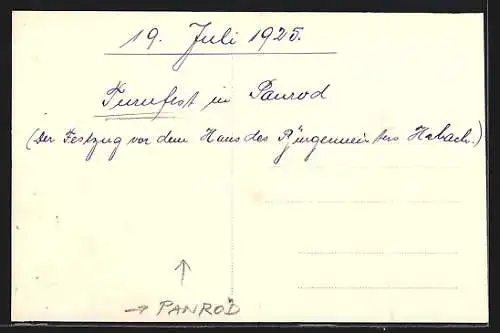 19. Juli 1925.
Turnfest in Panrod
(Der Festzug vor dem Haus des Bürgermeisters Habach.)
→ PANROD